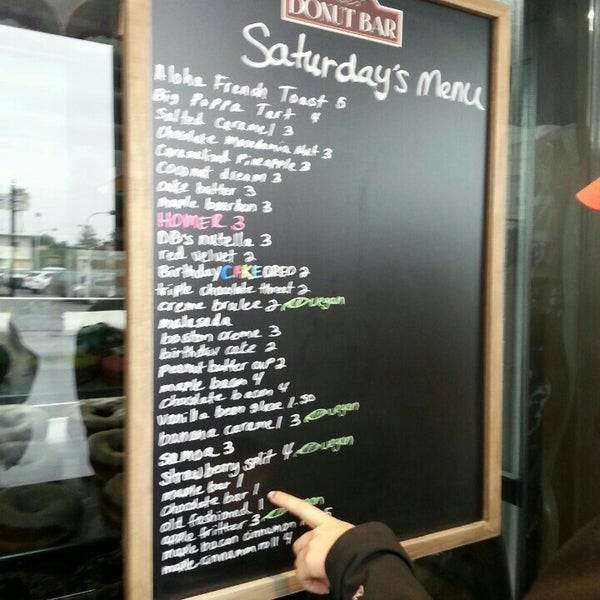 DONUT BAR
Saturday's Menu
Aloha French Toast 5
Big Poppa Tart 4
Salted Caramel 3
Chocolate Macadamia Nut 3
Caramelized Pineapple 3
Coconut dream 3
cake batter 3
maple bourbon 3
HOMER 3
DB's nutella 3
red velvet 2
Birthday CAKE OREO 2
triple chocolate threat 2
creme brulee 2 vegan
malasada
boston creme 3
birthday cake 2
peanut butter cup 2
maple bacon 4
chocolate bacon 4
vanilla bean glaze 1.50
banana caramel 3 vegan
samoa 3
strawberry split 4 vegan
maple bar 1
chocolate bar 1
old fashioned 1
apple fritter 3
maple bacon cinnamon 5
maple cinnamon roll 4